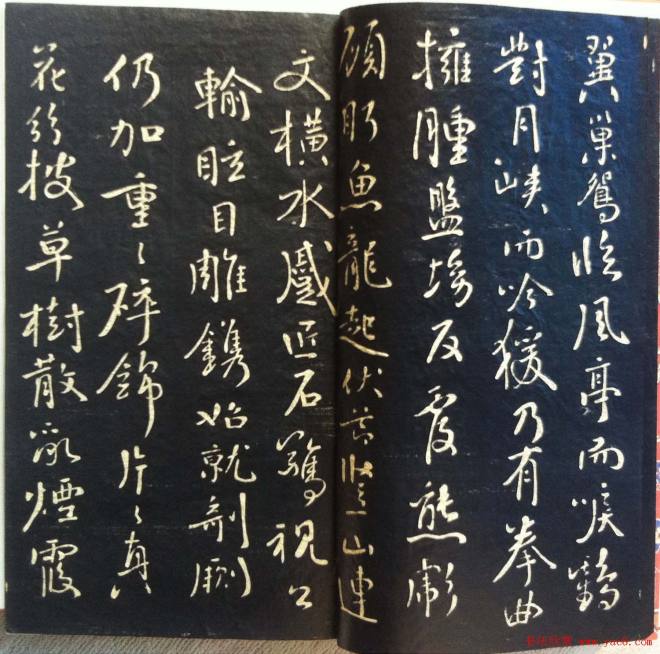 翼巢鴛臨風亭而唳鶴
對月峽而吟猨乃有拳曲
擁腫盤坳反覆熊彪
顧盼魚龍起伏節豎山連
文橫水蹙匠石驚視公
輸眩目雕鐫始就剞劂
仍加重〻碎錦片〻真
花紛披草樹散亂煙霞
书法欣赏 www.yac8.com